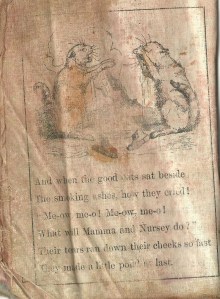 And when the good cats sat beside
The smoking ashes, how they cried!
"Me-ow, me-o! Me-ow, me-o!
What will Mamma and Nursey do?"
Their tears ran down their cheeks so fast
They made a little pond at last.